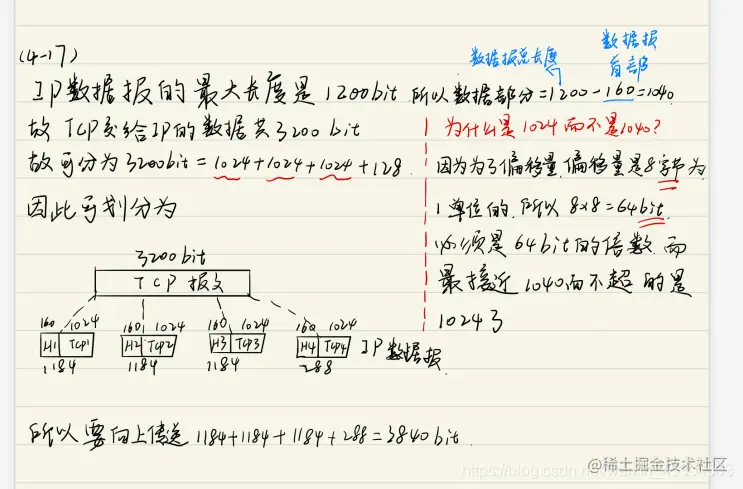 (4-17)
数据报总长度
数据报
首部
IP数据报的最大长度是1200bit 所以数据部分=1200-160=1040.
故TCP交给IP的数据共3200bit
为什么是1024而不是1040?
故可分为3200bit=1024+1024+1024+128.
因为为了偏移量,偏移量是8字节为
因此可划分为
1单位的,所以8×8=64bit,
必须是64bit的倍数,而
最接近1040而不超的是
1024了
3200bit
TCP报文
160 1024 160 1024 160 1024 160 1024
H1 TCP1 H2 TCP2 H3 TCP3 H4 TCP4 IP数据报.
1184 1184 1184 288
所以要向上传送1184+1184+1184+288=3840bit.
@稀土掘金技术社区